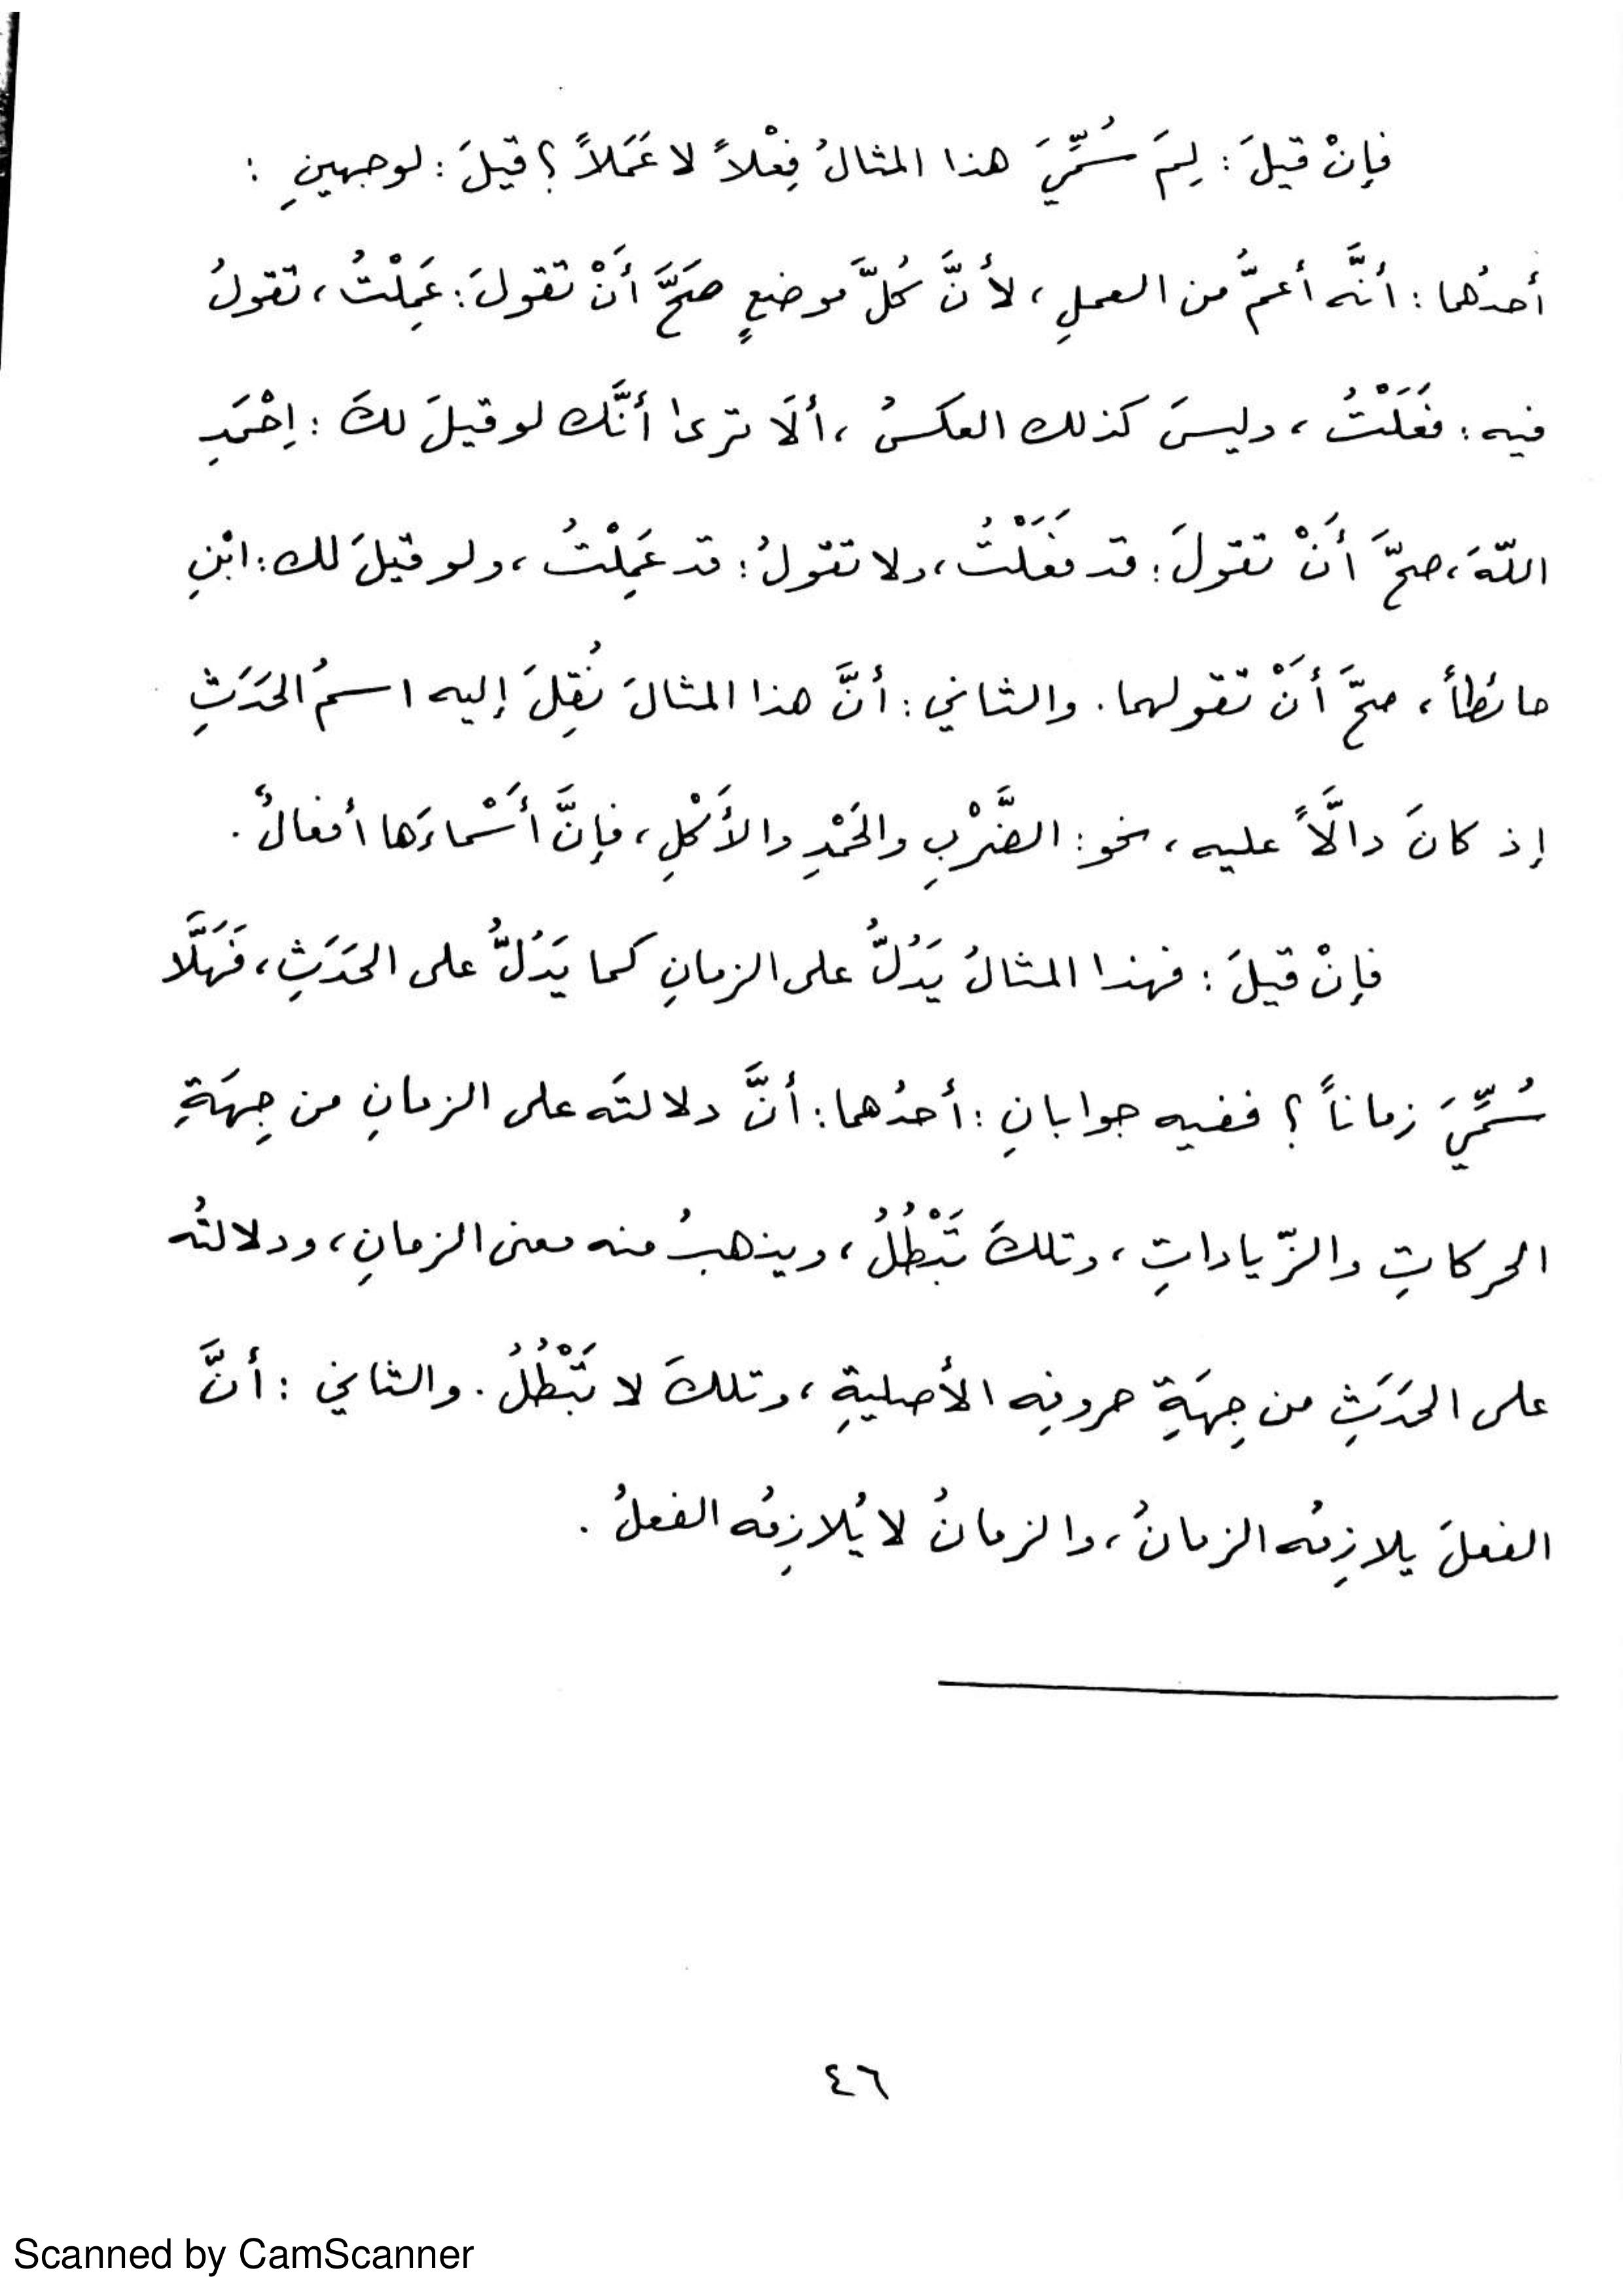 فإنْ قيلَ : لِمَ سُمِّيَ هذا المثالُ فِعْلاً لا عَمَلاً ؟ قيلَ : لوجهينِ :
أحدُهما : أنَّه أعمُّ من العملِ ، لأنَّ كُلَّ موضعٍ صَحَّ أَنْ تقولَ : عَمِلْتُ ، تقولُ
فيه : فَعَلْتُ ، وليسَ كذلك العكسُ ، ألَا ترى أنَّك لو قيلَ لكَ : اِحْمَدِ
اللّهَ ، صحَّ أَنْ تقولَ : قد فَعَلْتُ ، ولا تقولُ : قد عَمِلْتُ ، ولو قيلَ لك : ابْنِ
حائطاً ، صحَّ أَنْ تقولهما . والثاني : أنَّ هذا المثالَ نُقِلَ إليه اسمُ الحَدَثِ
إذ كانَ دالَّاً عليه ، نحو : الضَّرْبِ والحَمْدِ والأَكْلِ ، فإنَّ أَسْماءَها أفعالٌ .
فإنْ قيلَ : فهذا المثالُ يَدُلُّ على الزمانِ كما يَدُلُّ على الحَدَثِ ، فَهَلَّا
سُمِّيَ زماناً ؟ ففيه جوابانِ : أحدُهما : أنَّ دلالتَه على الزمانِ من جِهَةِ
الحركاتِ والزّياداتِ ، وتلكَ تَبْطُلُ ، ويذهبُ منه معنى الزمانِ ، ودلالتُه
على الحَدَثِ من جِهَةِ حروفِه الأصليةِ ، وتلكَ لا تَبْطُلُ . والثاني : أنَّ
الفعلَ يلازِمُه الزمانُ ، والزمانُ لا يُلازِمُه الفعلُ .
٤٦
Scanned by CamScanner